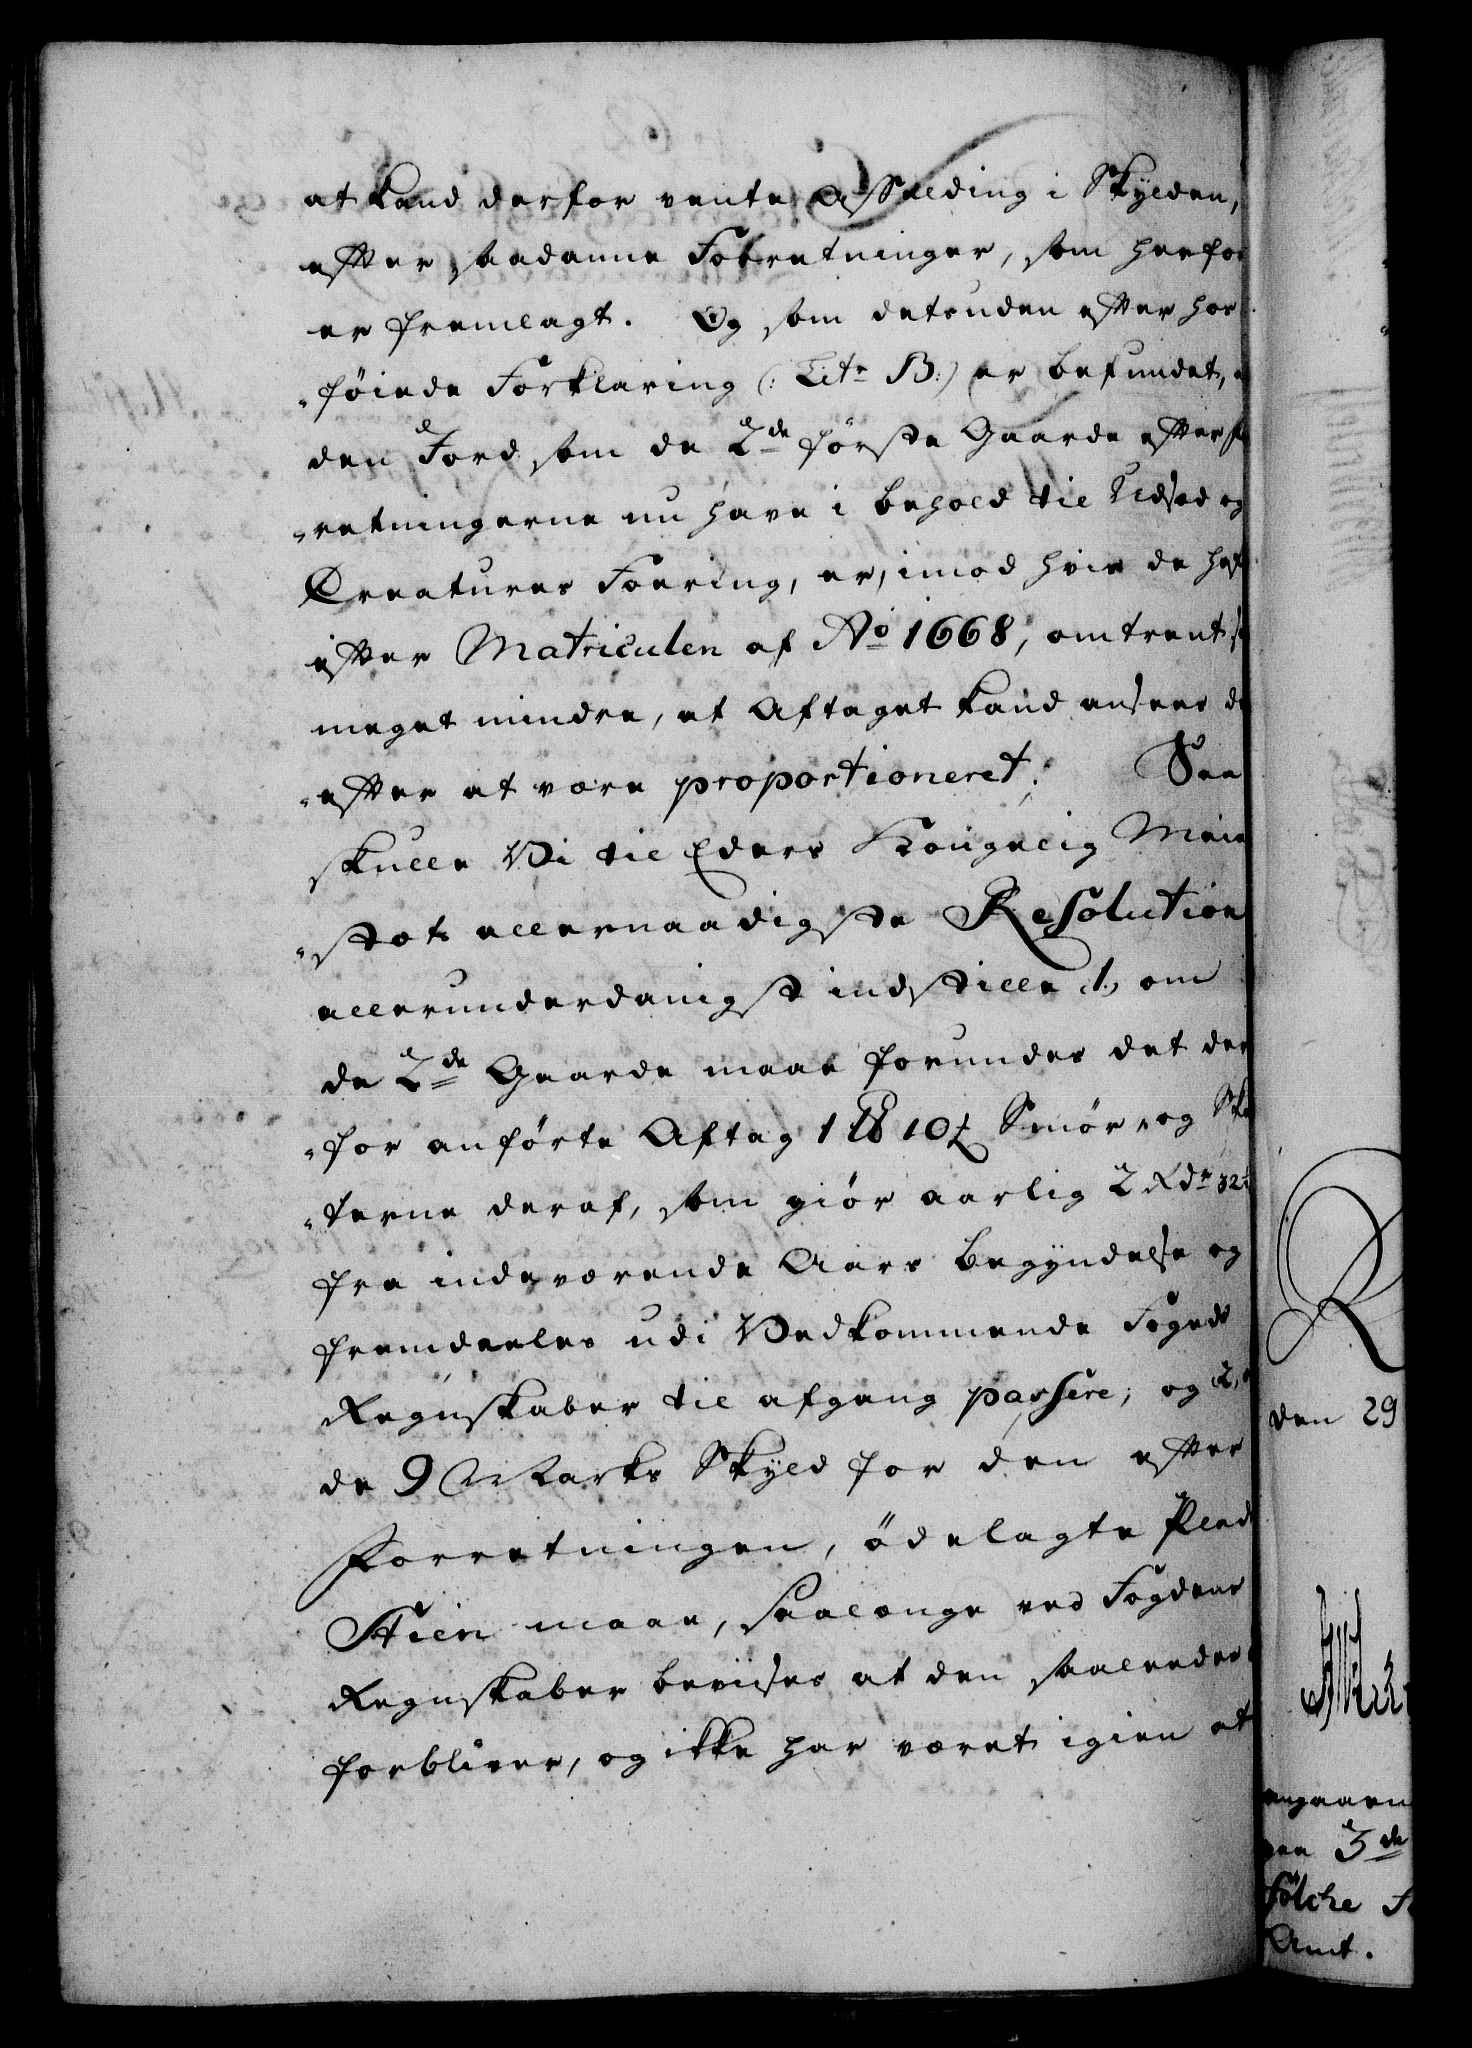 at kand derfor vente Affælding i Skylden,
efter saadanne Forretninger, som herfor
er fremlagt. Og som desuden efter hos
„føiede Forklaring (: Litr B:) er befundet,
den Jord som de 2de første Gaarde efter
„retningerne nu have i behold til Udsæd og
Creaturers Foering, er, imod hvis de
efter Matriculen af Ao 1668, omtrent
meget mindre, at Aftaget kand ansees
„efter at være proportioneret; Saa
skulle Vi til Eders Kongelig Maie
„stæts allernaadigste Resolution
allerunderdanigst indstille, 1, om
de 2de Gaarde maae forundes det der
„for anførte Aftag 1 10 Smør, og
„terne deraf, som giør aarlig 2 Rdr 32
fra indeværende Aars Begyndelse og
fremdeeles udi Vedkommende Fogeds
Regnskaber til afgang passere; og 2,
de 9 Marks Skyld for den efter
Forretningen, ødelagte Plads
Stien maae, saalænge ved Fogdens
Regnskaber bevises at den saaledes
forbliver, og ikke har været igien at
den 29
angaaen
3de
Amt.